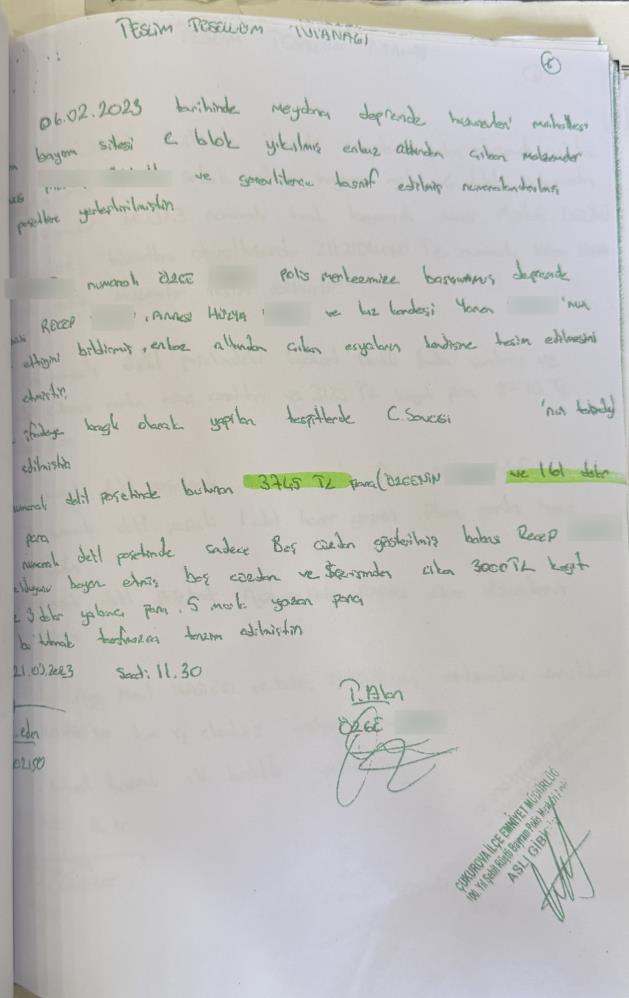 TESLİM TESELLÜM TUTANAĞI
8
06.02.2023 tarihinde meydana deprende huzurevleri mahallesi
bayam sitesi C blok yıkılmış enkaz altından çıkan malzemeler
ve tasnif edilmiş numaralandırılmış
poşetlere yerleştirilmiştir
numaralı ÖZGE polis merkezimize başvurmuş deprende
RECEP , Annesi ve kız kardeşi 'nın
ettiğini bildirmiş, enkaz altından çıkan eşyaların kendisine teslim edilmesini
etmiştir.
ifadeye bağlı olarak yapılan tespitlerde C. Savcısı 'nın
edilmiştir
numaralı delil poşetinde bulunan 3745 TL para (ÖZGENİN ve 161 dolar
para
numaralı delil poşetinde sadece Boş cüzdan gösterilmiş babası Recep
olduğunu beyan etmiş boş cüzdan ve içerisinden çıkan 3000 TL kağıt
3 yabancı para, 5 mark yazan para
bu tutanak tarafımızca tanzim edilmiştir
Saat: 11.30
T. Alan
ÖZGE
eden
ÇUKUROVA İLÇE EMNİYET MÜDÜRLÜĞÜ
100. Yıl Şehit Rüştü Bayram Polis
ASLI GİBİ